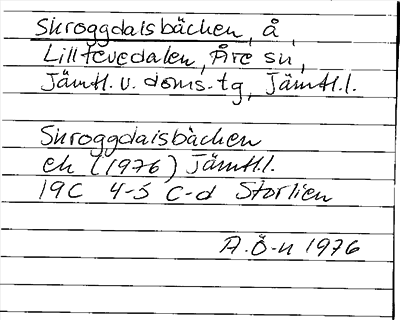 Skroggdalsbäcken, å,
Lilltevedalen, Åre sn,
Jämtl. v. doms.tg, Jämtl.l.
Skroggdalsbäcken
ek (1976) Jämtl.l.
19C 4-5 c-d Storlien
A.Ö-n 1976